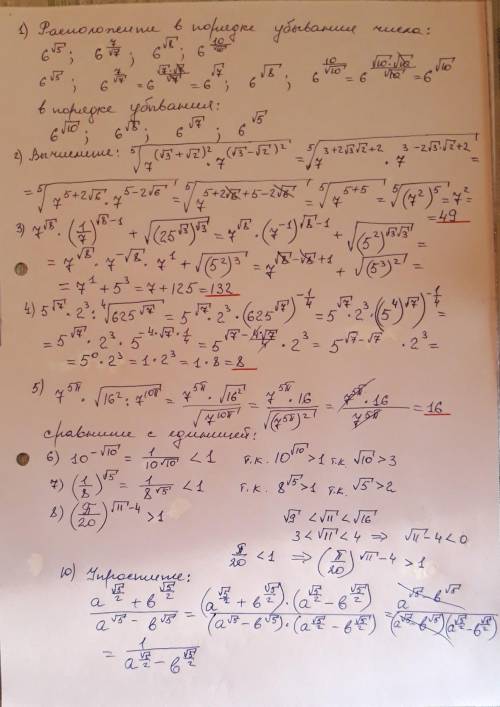 1) Расположите в порядке убывания числа:
6^√5; 6^(7/√7); 6^√8; 6^(10/√10)
6^√5; 6^(7/√7) = 6^(√7·√7/√7) = 6^√7; 6^√8; 6^(10/√10) = 6^(√10·√10/√10) = 6^√10
в порядке убывания:
6^√10; 6^√8; 6^√7; 6^√5
2) Вычислите: ⁵√(7^(√3+√2)² · 7^(√3-√2)²) = ⁵√(7^(3+2√3√2+2) · 7^(3-2√3·√2+2)) =
= ⁵√(7^(5+2√6) · 7^(5-2√6)) = ⁵√(7^(5+2√6+5-2√6)) = ⁵√(7^(5+5)) = ⁵√((7²)⁵) = 7² =
= 49
3) 7^√8 · (1/7)^(√8-1) + √((25^√3)^√3) = 7^√8 · (7^-1)^(√8-1) + √((5²)^(√3√3)) =
= 7^√8 · 7^-√8 · 7^1 + √((5²)³) = 7^(√8-√8+1) + √((5³)²) =
= 7^1 + 5³ = 7 + 125 = 132
4) 5^√7 · 2³ : ⁴√(625^√7) = 5^√7 · 2³ · (625^√7)^(-1/4) = 5^√7 · 2³ · (5⁴)^√7)^(-1/4) =
= 5^√7 · 2³ · 5^(-4·√7·1/4) = 5^(√7-4·√7/4) · 2³ = 5^(√7-√7) · 2³ =
= 5⁰ · 2³ = 1 · 2³ = 1 · 8 = 8
5) 7^(5π) · √(16² : 7^(10π)) = 7^(5π) · √(16²) / √(7^(10π)) = 7^(5π) · 16 / √((7^(5π))²) = 7^(5π) · 16 / 7^(5π) = 16
сравните с единицей:
6) 10^(-√10) = 1/10^√10 < 1 т.к. 10^√10 > 1 т.к. √10 > 3
7) (1/8)^√5 = 1/8^√5 < 1 т.к. 8^√5 > 1 т.к. √5 > 2
8) (π/20)^(√11-4) > 1 √9 < √11 < √16
3 < √11 < 4 ⇒ √11-4 < 0
π/20 < 1 ⇒ (π/20)^(√11-4) > 1
10) Упростите:
(a^(√5/2) + b^(√5/2)) / (a^√5 - b^√5) = (a^(√5/2) + b^(√5/2)) · (a^(√5/2) - b^(√5/2)) / ((a^√5 - b^√5) · (a^(√5/2) - b^(√5/2))) = (a^√5 - b^√5) / ((a^√5 - b^√5)(a^(√5/2) - b^(√5/2))) =
= 1 / (a^(√5/2) - b^(√5/2))